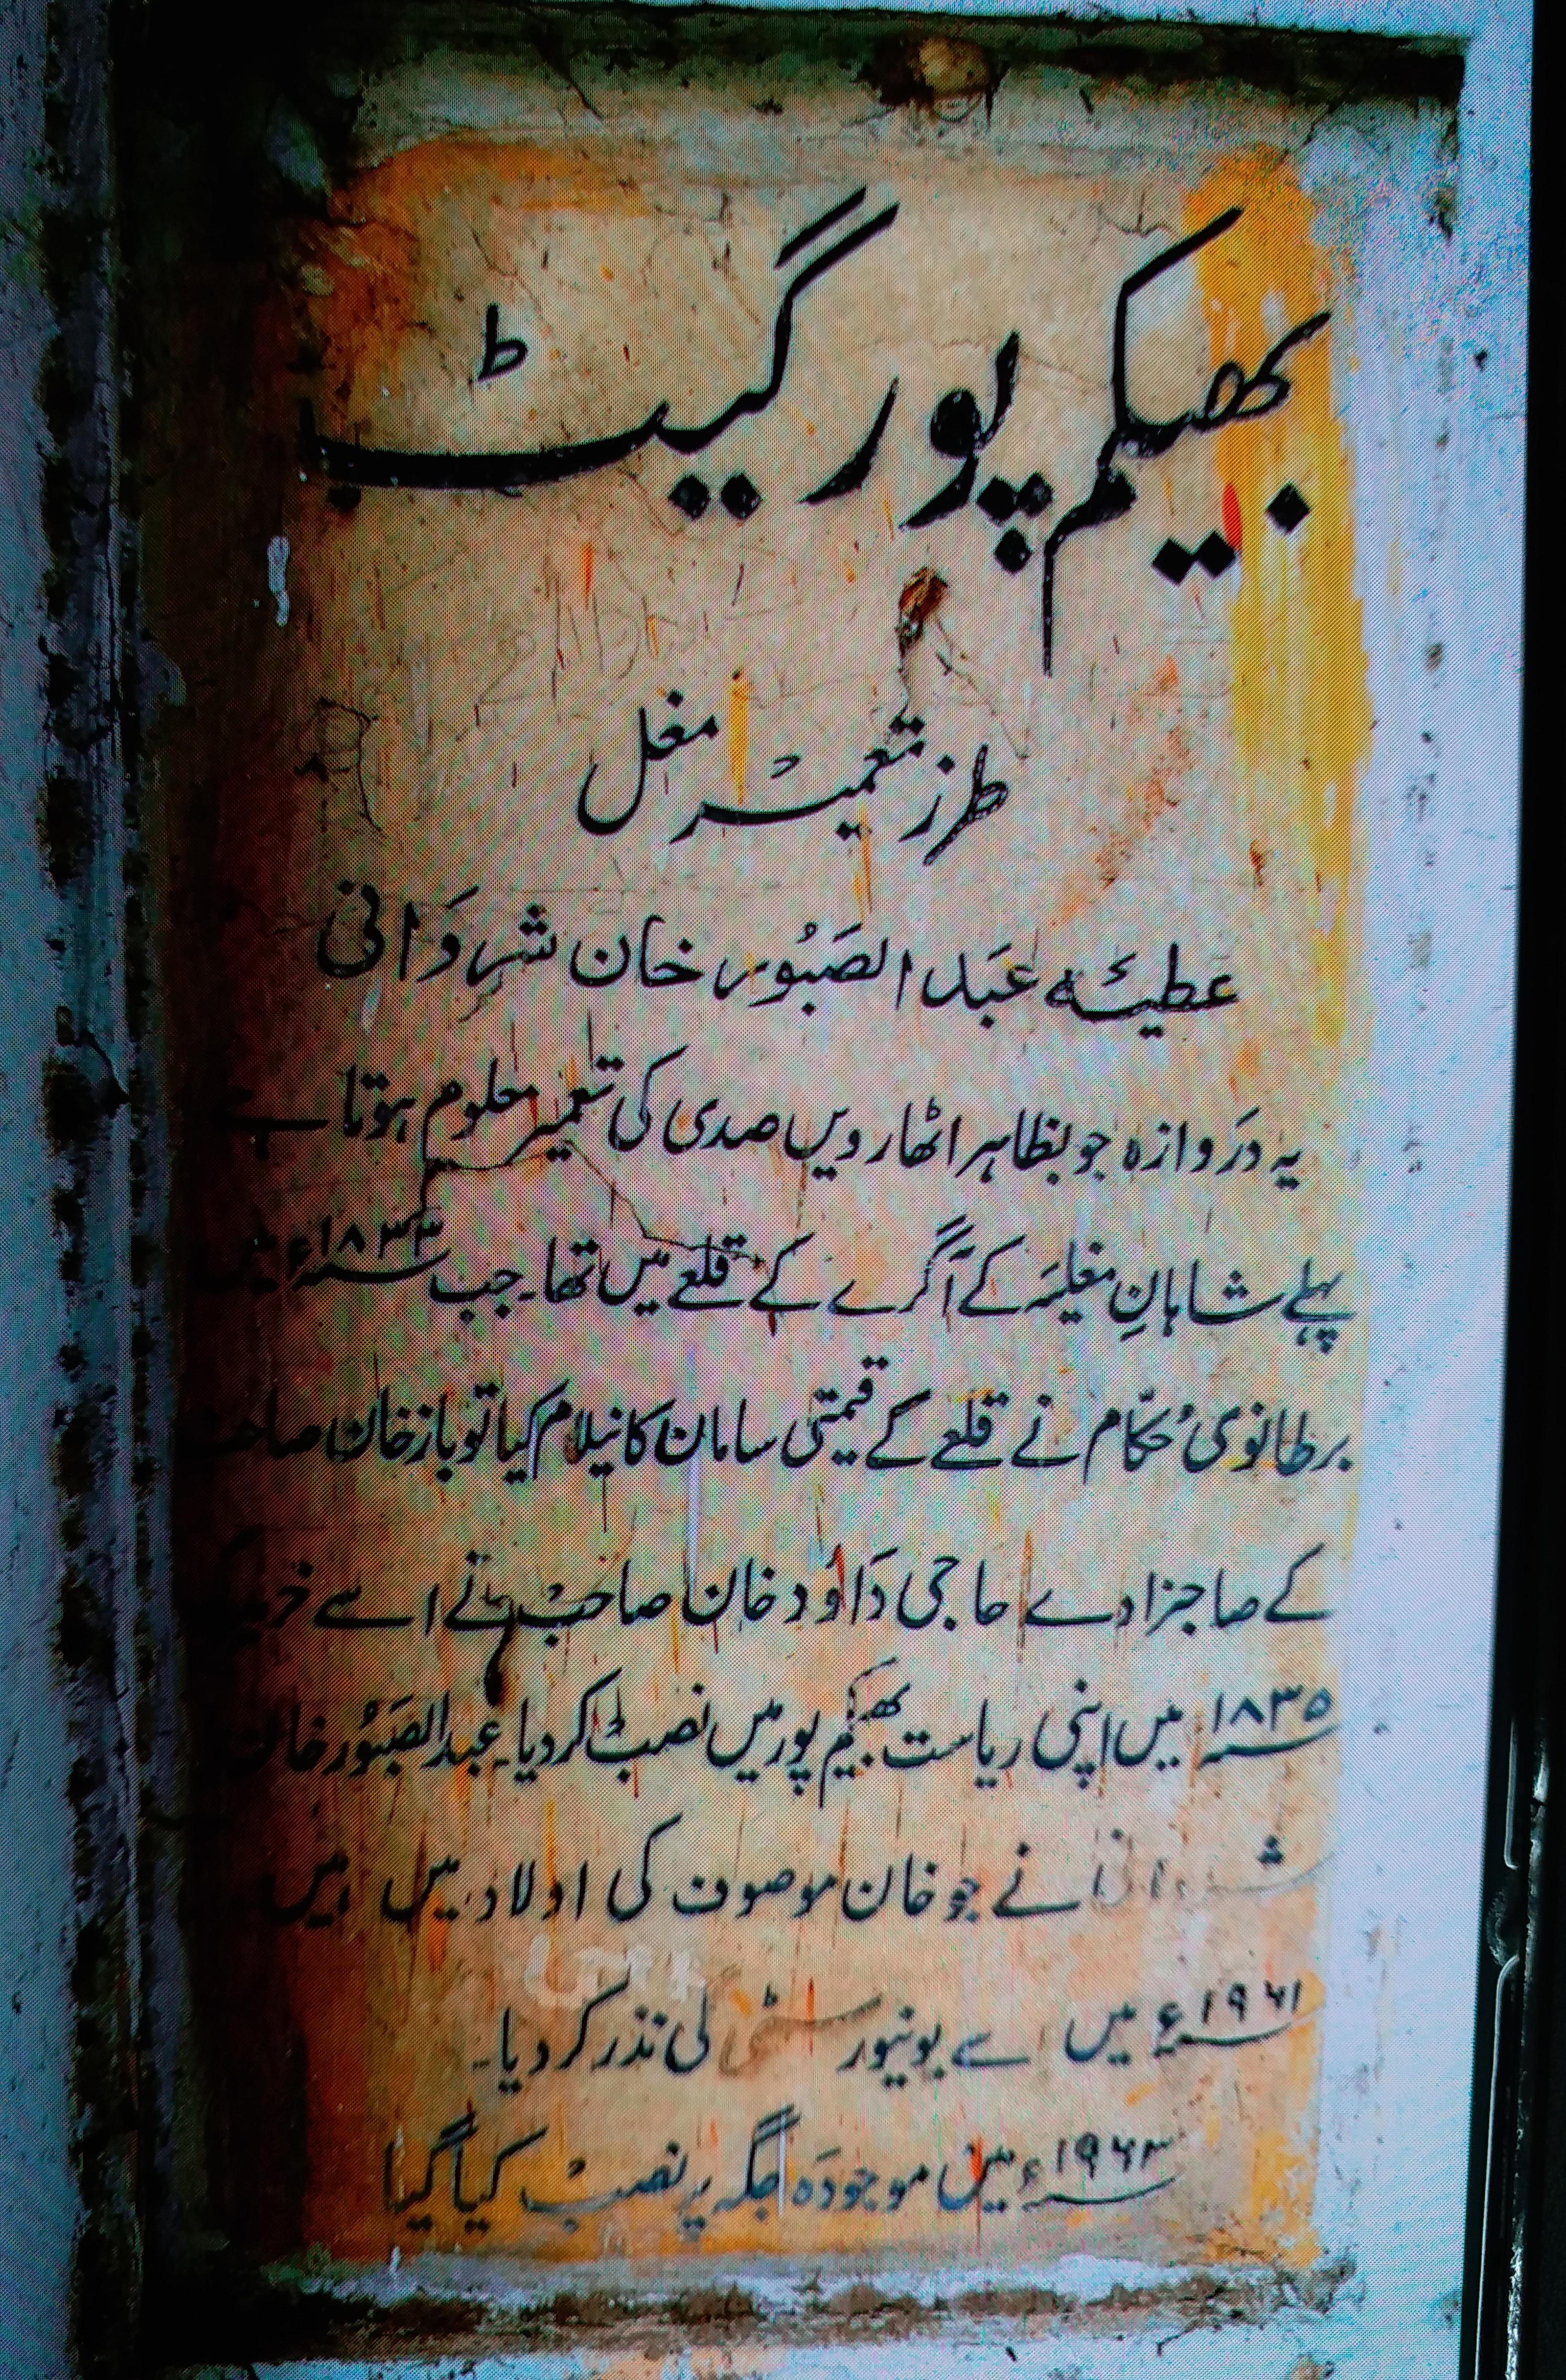 بھیکم پور گیٹ
طرز تعمیر مغل
عطیہ عبد الصَبُور خان شروَانی
یہ دَروازہ جو بظاہر اٹھارویں صدی کی تعمیر معلوم ہوتا ہے
پہلے شاہانِ مغلیہ کے آگرے کے قلعے میں تھا۔ جب ۱۸۳۳ء میں
برطانوی حُکّام نے قلعے کے قیمتی سامان کا نیلام کیا تو باز خان صاحب
کے صاحبزادے حاجی دَاؤد خان صاحب نے اسے
۱۸۳۵ میں اپنی ریاست بھیکم پور میں نصب کر دیا۔ عبد الصَبُور خان
نے جو خان موصوف کی اولاد میں ہیں
۱۹۶۱ء میں سے یونیورسٹی کی نذر کر دیا۔
۱۹۶۳ء میں موجودہ جگہ پر نصب کیا گیا